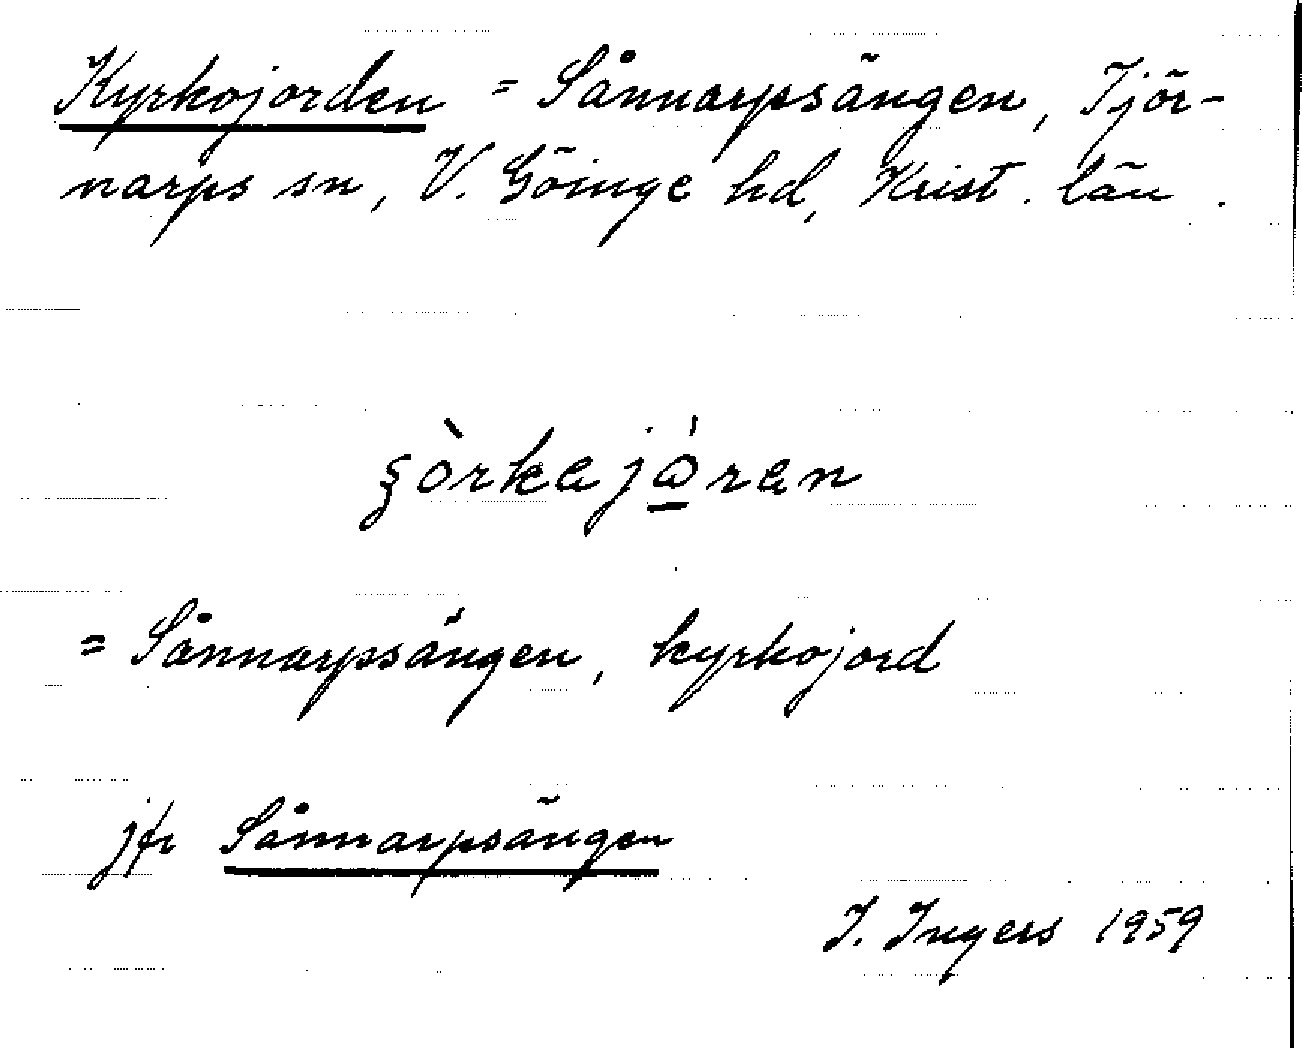 Kyrkojorden = Sånnarpsängen, Tjör-
narps sn, V. Göinge hd, Krist. län.
ʂòrkajɷ̠́ran
= Sånnarpsängen, kyrkojord
jfr Sånnarpsängen
I. Ingers 1959